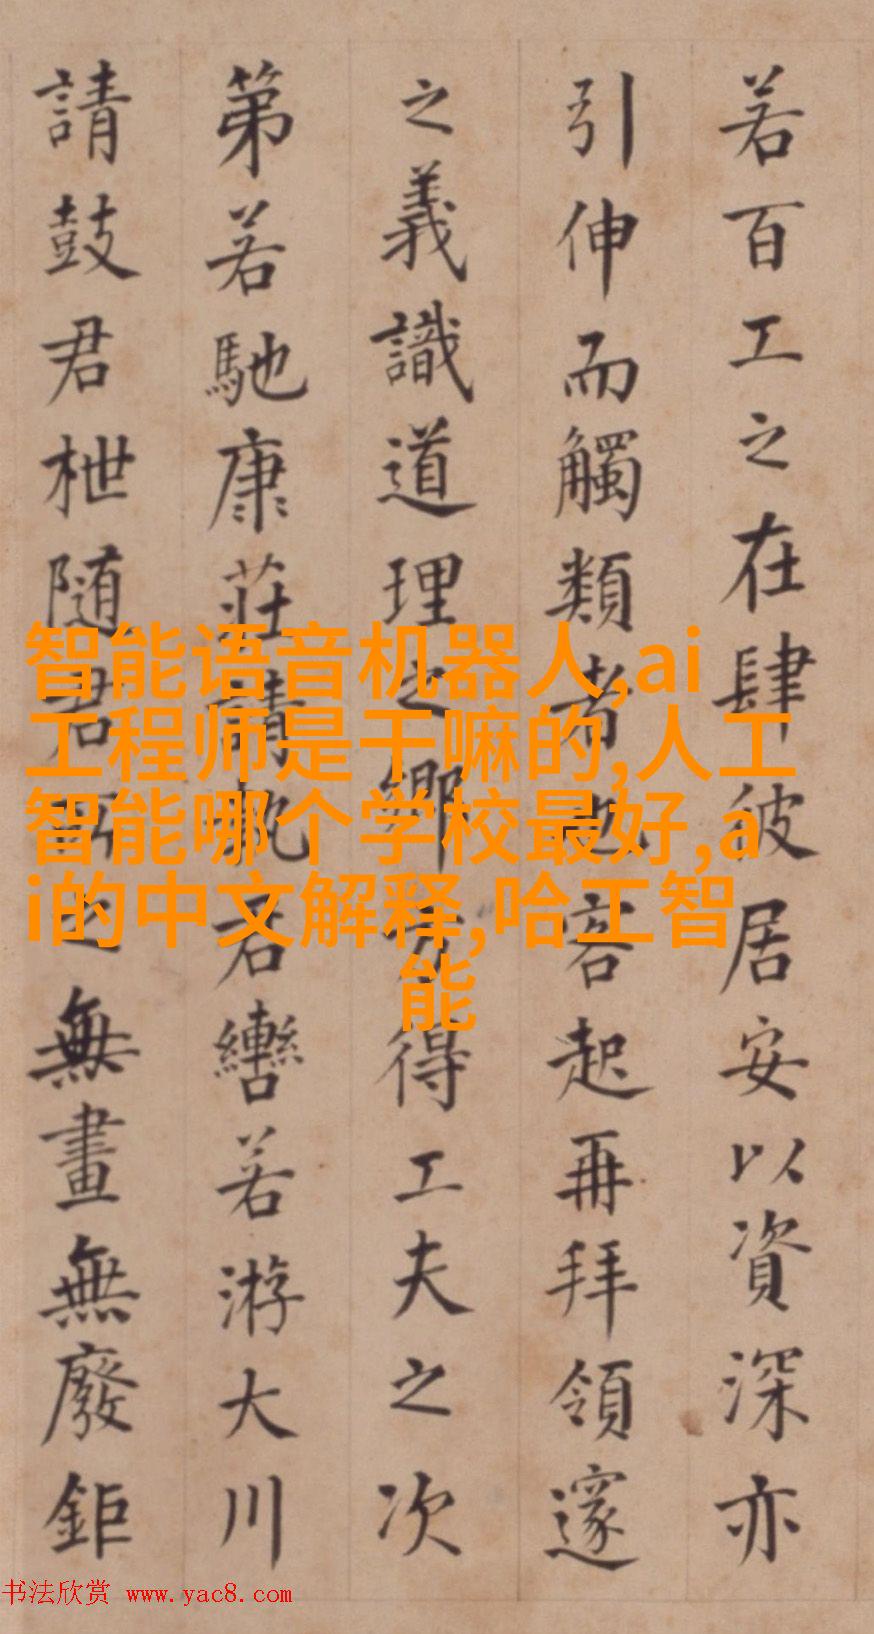 若百工之在肆彼居安以資深亦
引伸而觸類者也客起再拜領邃
之義識道理之鄉方得工夫之次
第若馳康莊請執君轡若游大川
請鼓君枻随君所之無畫無廢鉅
智能语音机器人,ai
工程师是干嘛的,人工
智能哪个学校最好,a
i的中文解释,哈工智
能
书法欣赏 www.yac8.com